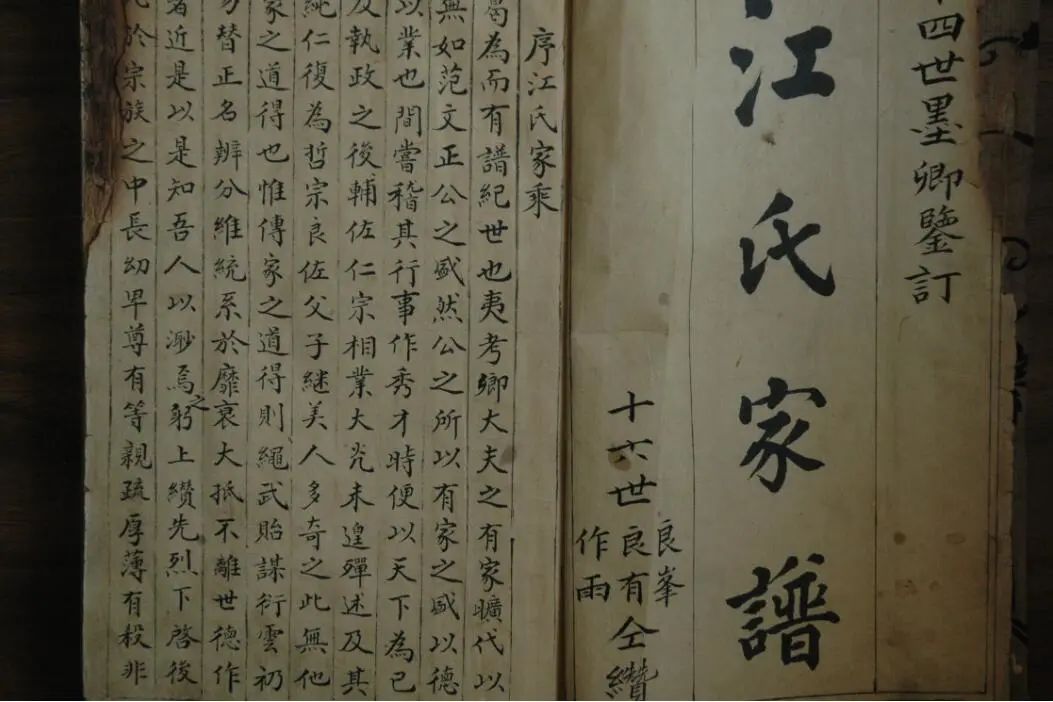 四世墨卿鑒訂
江氏家譜
十六世
良峯
良有
作雨
仝纘
序江氏家乘
曷為而有譜紀世也夷考卿大夫之有家曠代以
無如范文正公之盛然公之所以有家之盛以德
以業也間嘗稽其行事作秀才時便以天下為己
及執政之後輔佐仁宗相業大光未遑殫述及其
純仁復為哲宗良佐父子継美人多奇之此無他
家之道得也惟傳家之道得則繩武貽謀衍雲礽
替正名辨分維統系於靡衰大抵不離世德作
者近是以是知吾人以渺焉之躬上纘先烈下啓後
於宗族之中長幼卑尊有等親疏厚薄有殺非